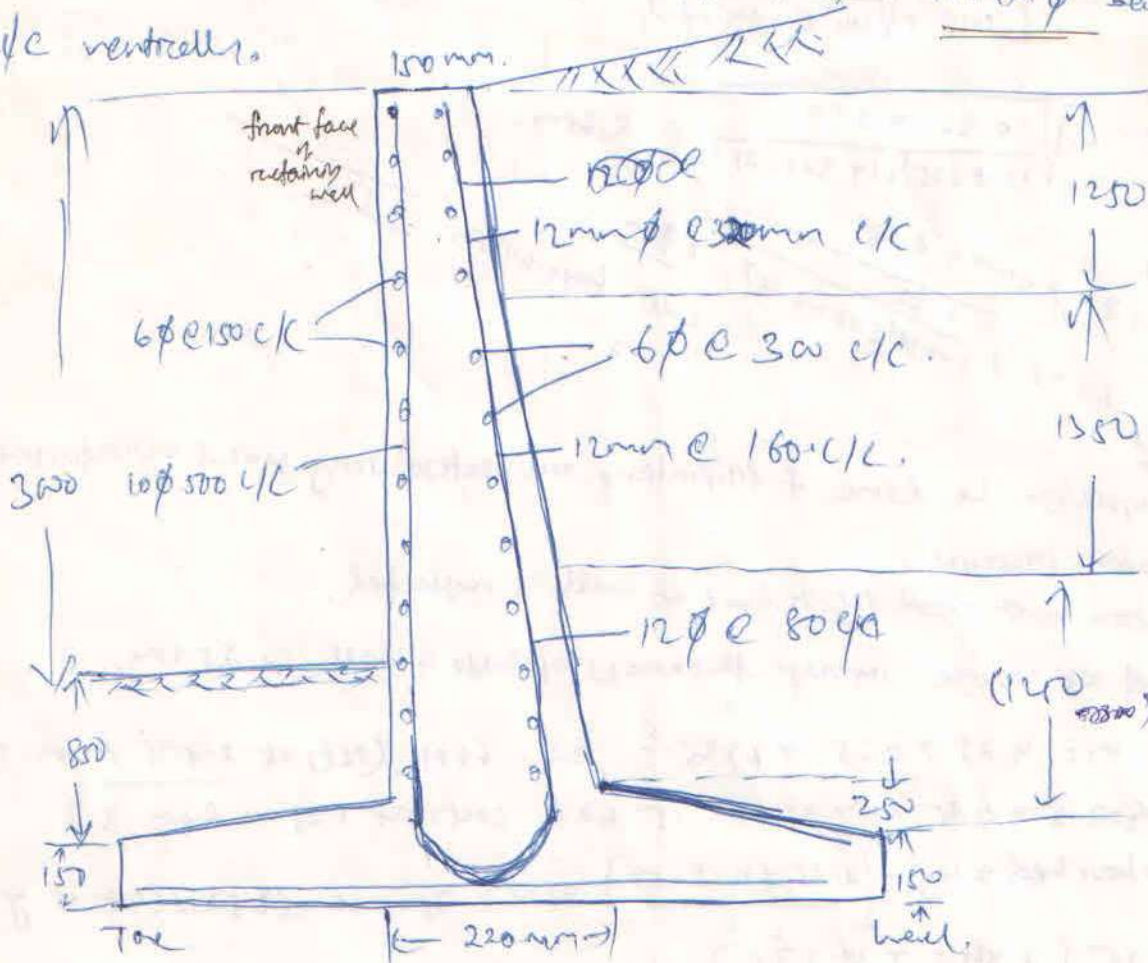 c/c vertically.
150 mm.
front face
of
retaining
wall
1250
12mm φ @ 320mm c/c
6φ @ 150 c/c
6φ @ 300 c/c.
1350
12mm @ 160 c/c.
3000 10φ 500 c/c
12φ @ 80 c/c
(1250
850
250
150
150
Toe
220 mm
heel.